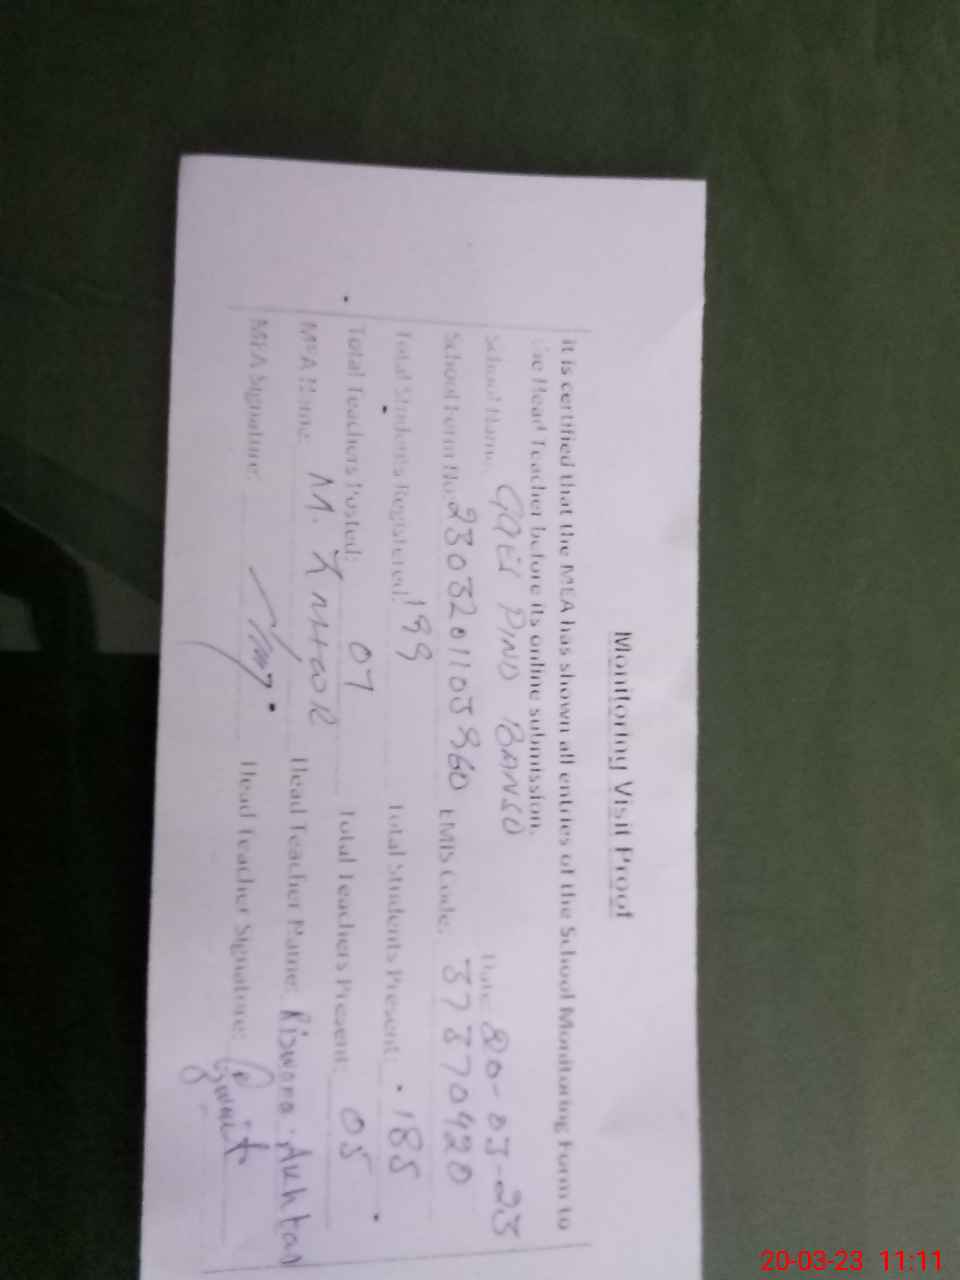 Monitoring Visit Proof
It is certified that the MEA has shown all entries of the School Monitoring Form to
the Head Teacher before its online submission.
School Name: PIND Date: 20-03-23
School Form No. EMIS Code: 37370420
Total Students Registered: 199 Total Students Present: 185
Total Teachers Posted: 07 Total Teachers Present: 05
MEA Name: M. Head Teacher Name: Rizwana Akhtar
MEA Signature: Head Teacher Signature:
20-03-23 11:11